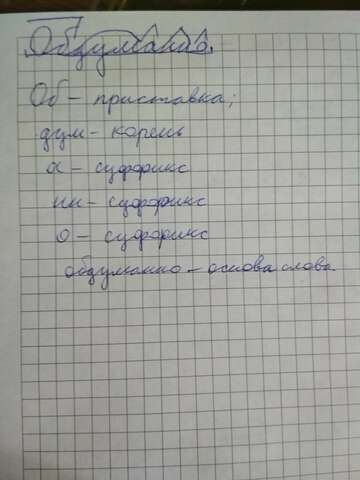 Обдуманно.
Об - приставка;
дум - корень
а - суффикс
нн - суффикс
о - суффикс
обдуманно - основа слова.